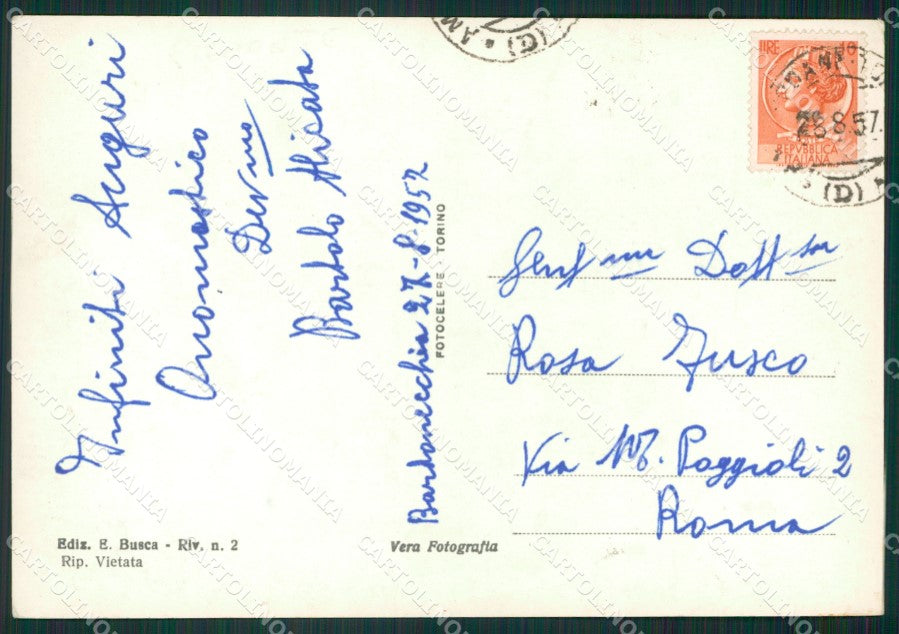 Infiniti Auguri
Onomastico
Dev mo
Bartolo Alicata
Bardonecchia 27-8-1957
FOTOCELERE - TORINO
LIRE 10
REPVBBLICA
ITALIANA
28.8.57.
(D)
(C) • AM
Gent ma Dott ssa
Rosa Fusco
Via M. Poggioli 2
Roma
Ediz. E. Busca - Riv. n. 2
Rip. Vietata
Vera Fotografia
CARTOLINOMANIA